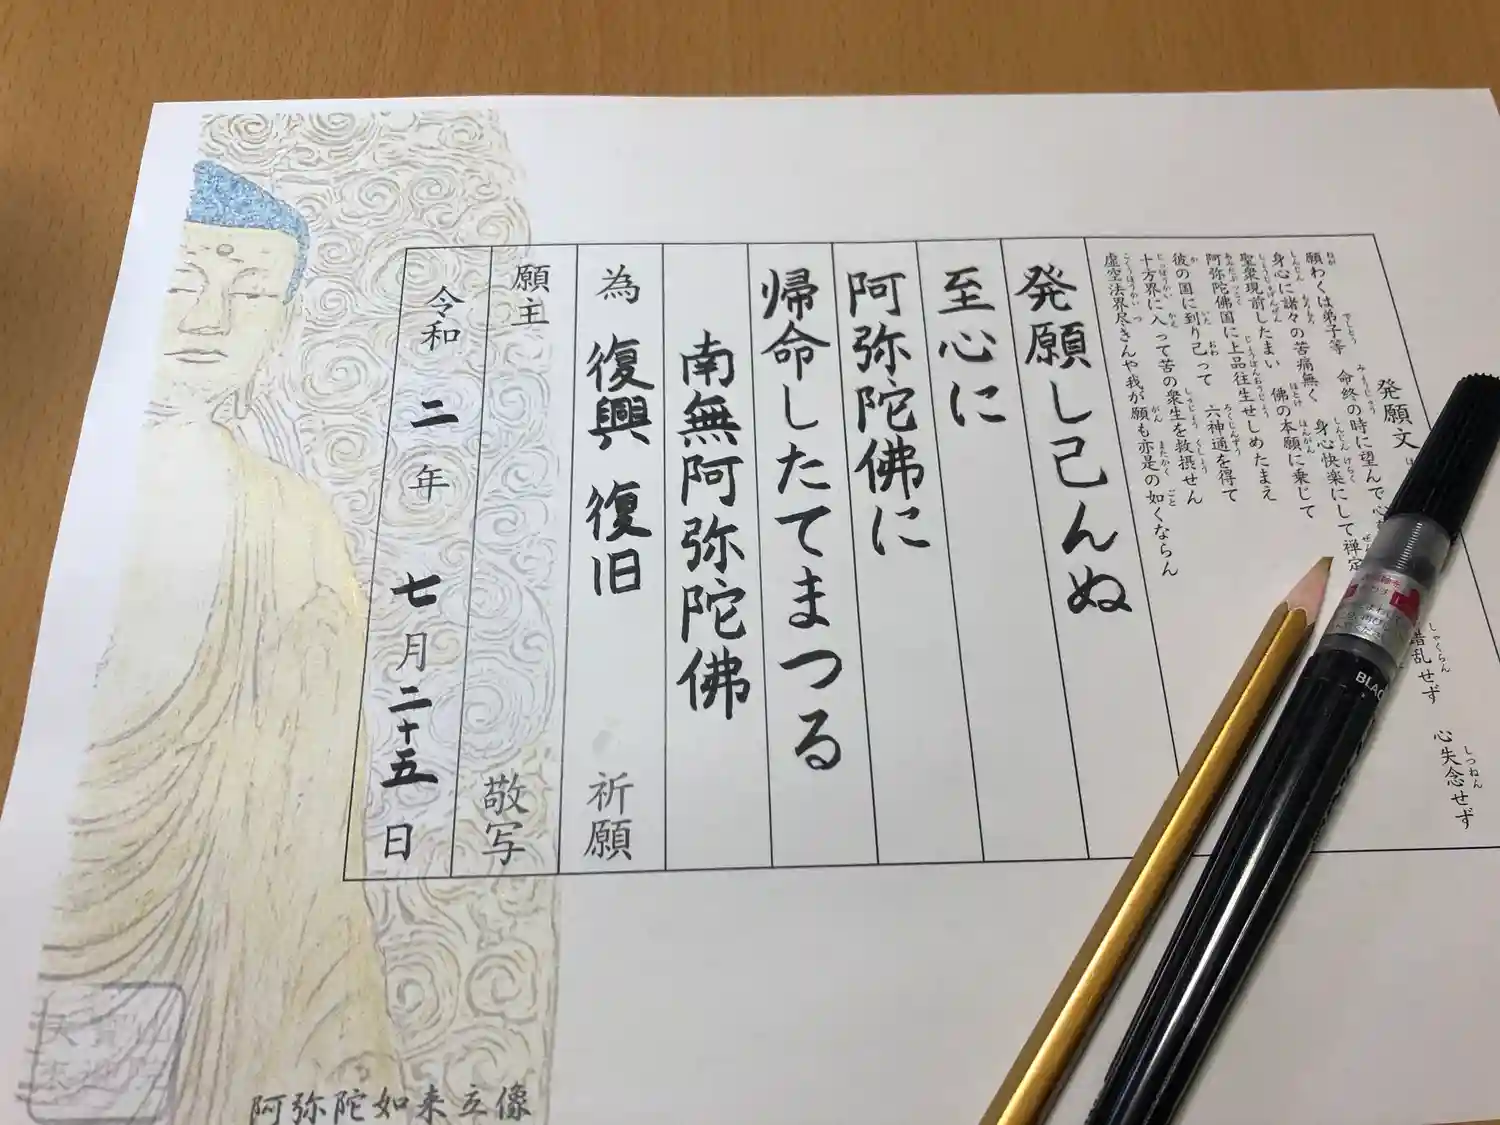 発願文
願わくは弟子等 命終の時に望んで心 錯乱せず 心失念せず
身心に諸々の苦痛無く 身心快楽にして禅定
聖衆現前したまい 佛の本願に乗じて
阿弥陀佛国に上品往生せしめたまえ
彼の国に到り己って 六神通を得て
十方界に入って苦の衆生を救摂せん
虚空法界尽きんや我が願も亦是の如くならん
発願し己んぬ
至心に
阿弥陀佛に
帰命したてまつる
南無阿弥陀佛
為 復興 復旧 祈願
願主 敬写
令和 二 年 七 月 二十五 日
阿弥陀如来立像